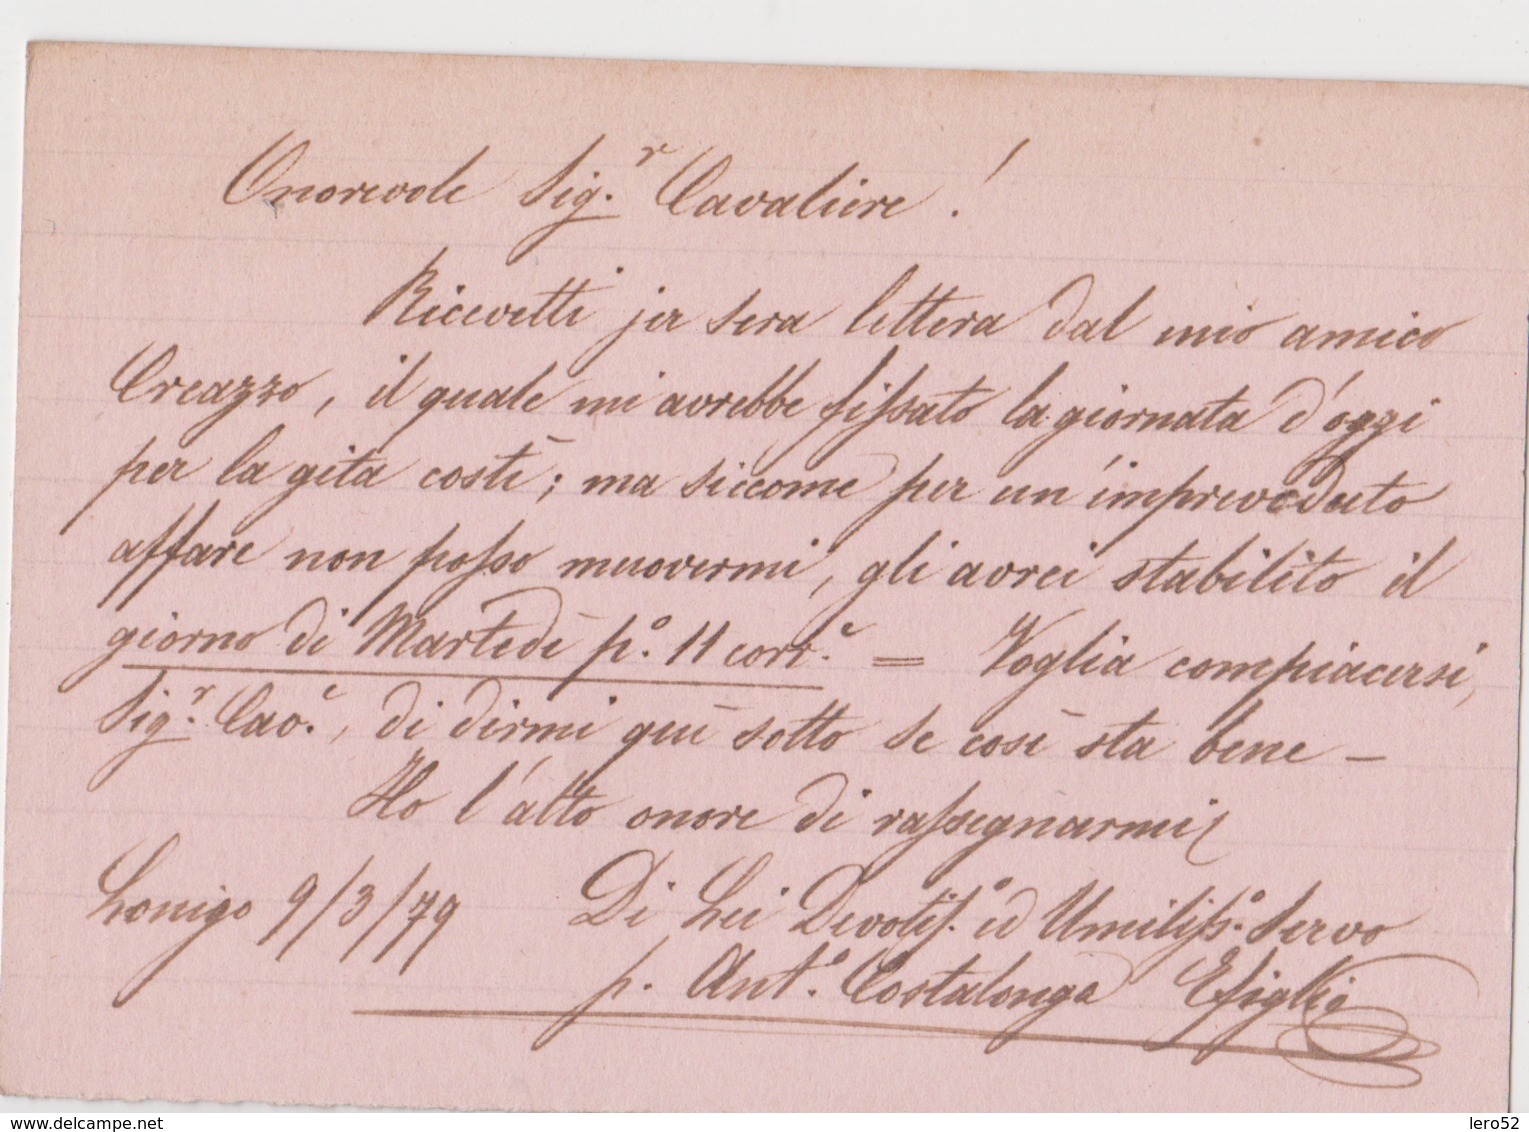 Onorevole Sig.r Cavaliere!
Ricevetti jer sera lettera dal mio amico
Creazzo, il quale mi avrebbe fissato la giornata d'oggi
per la gita costì; ma siccome per un'impreveduto
affare non posso muovermi, gli avrei stabilito il
giorno di Martedì p.o 11 corr.e = Voglia compiacersi,
Sig.r Cav.e, di dirmi quì sotto se così sta bene –
Ho l'alto onore di rassegnarmi
Lonigo 9/3/79 Di Lei Devotiss.o ed Umiliss.o servo
p. Ant.o Costalonga e figlio
www.delcampe.net
lero52